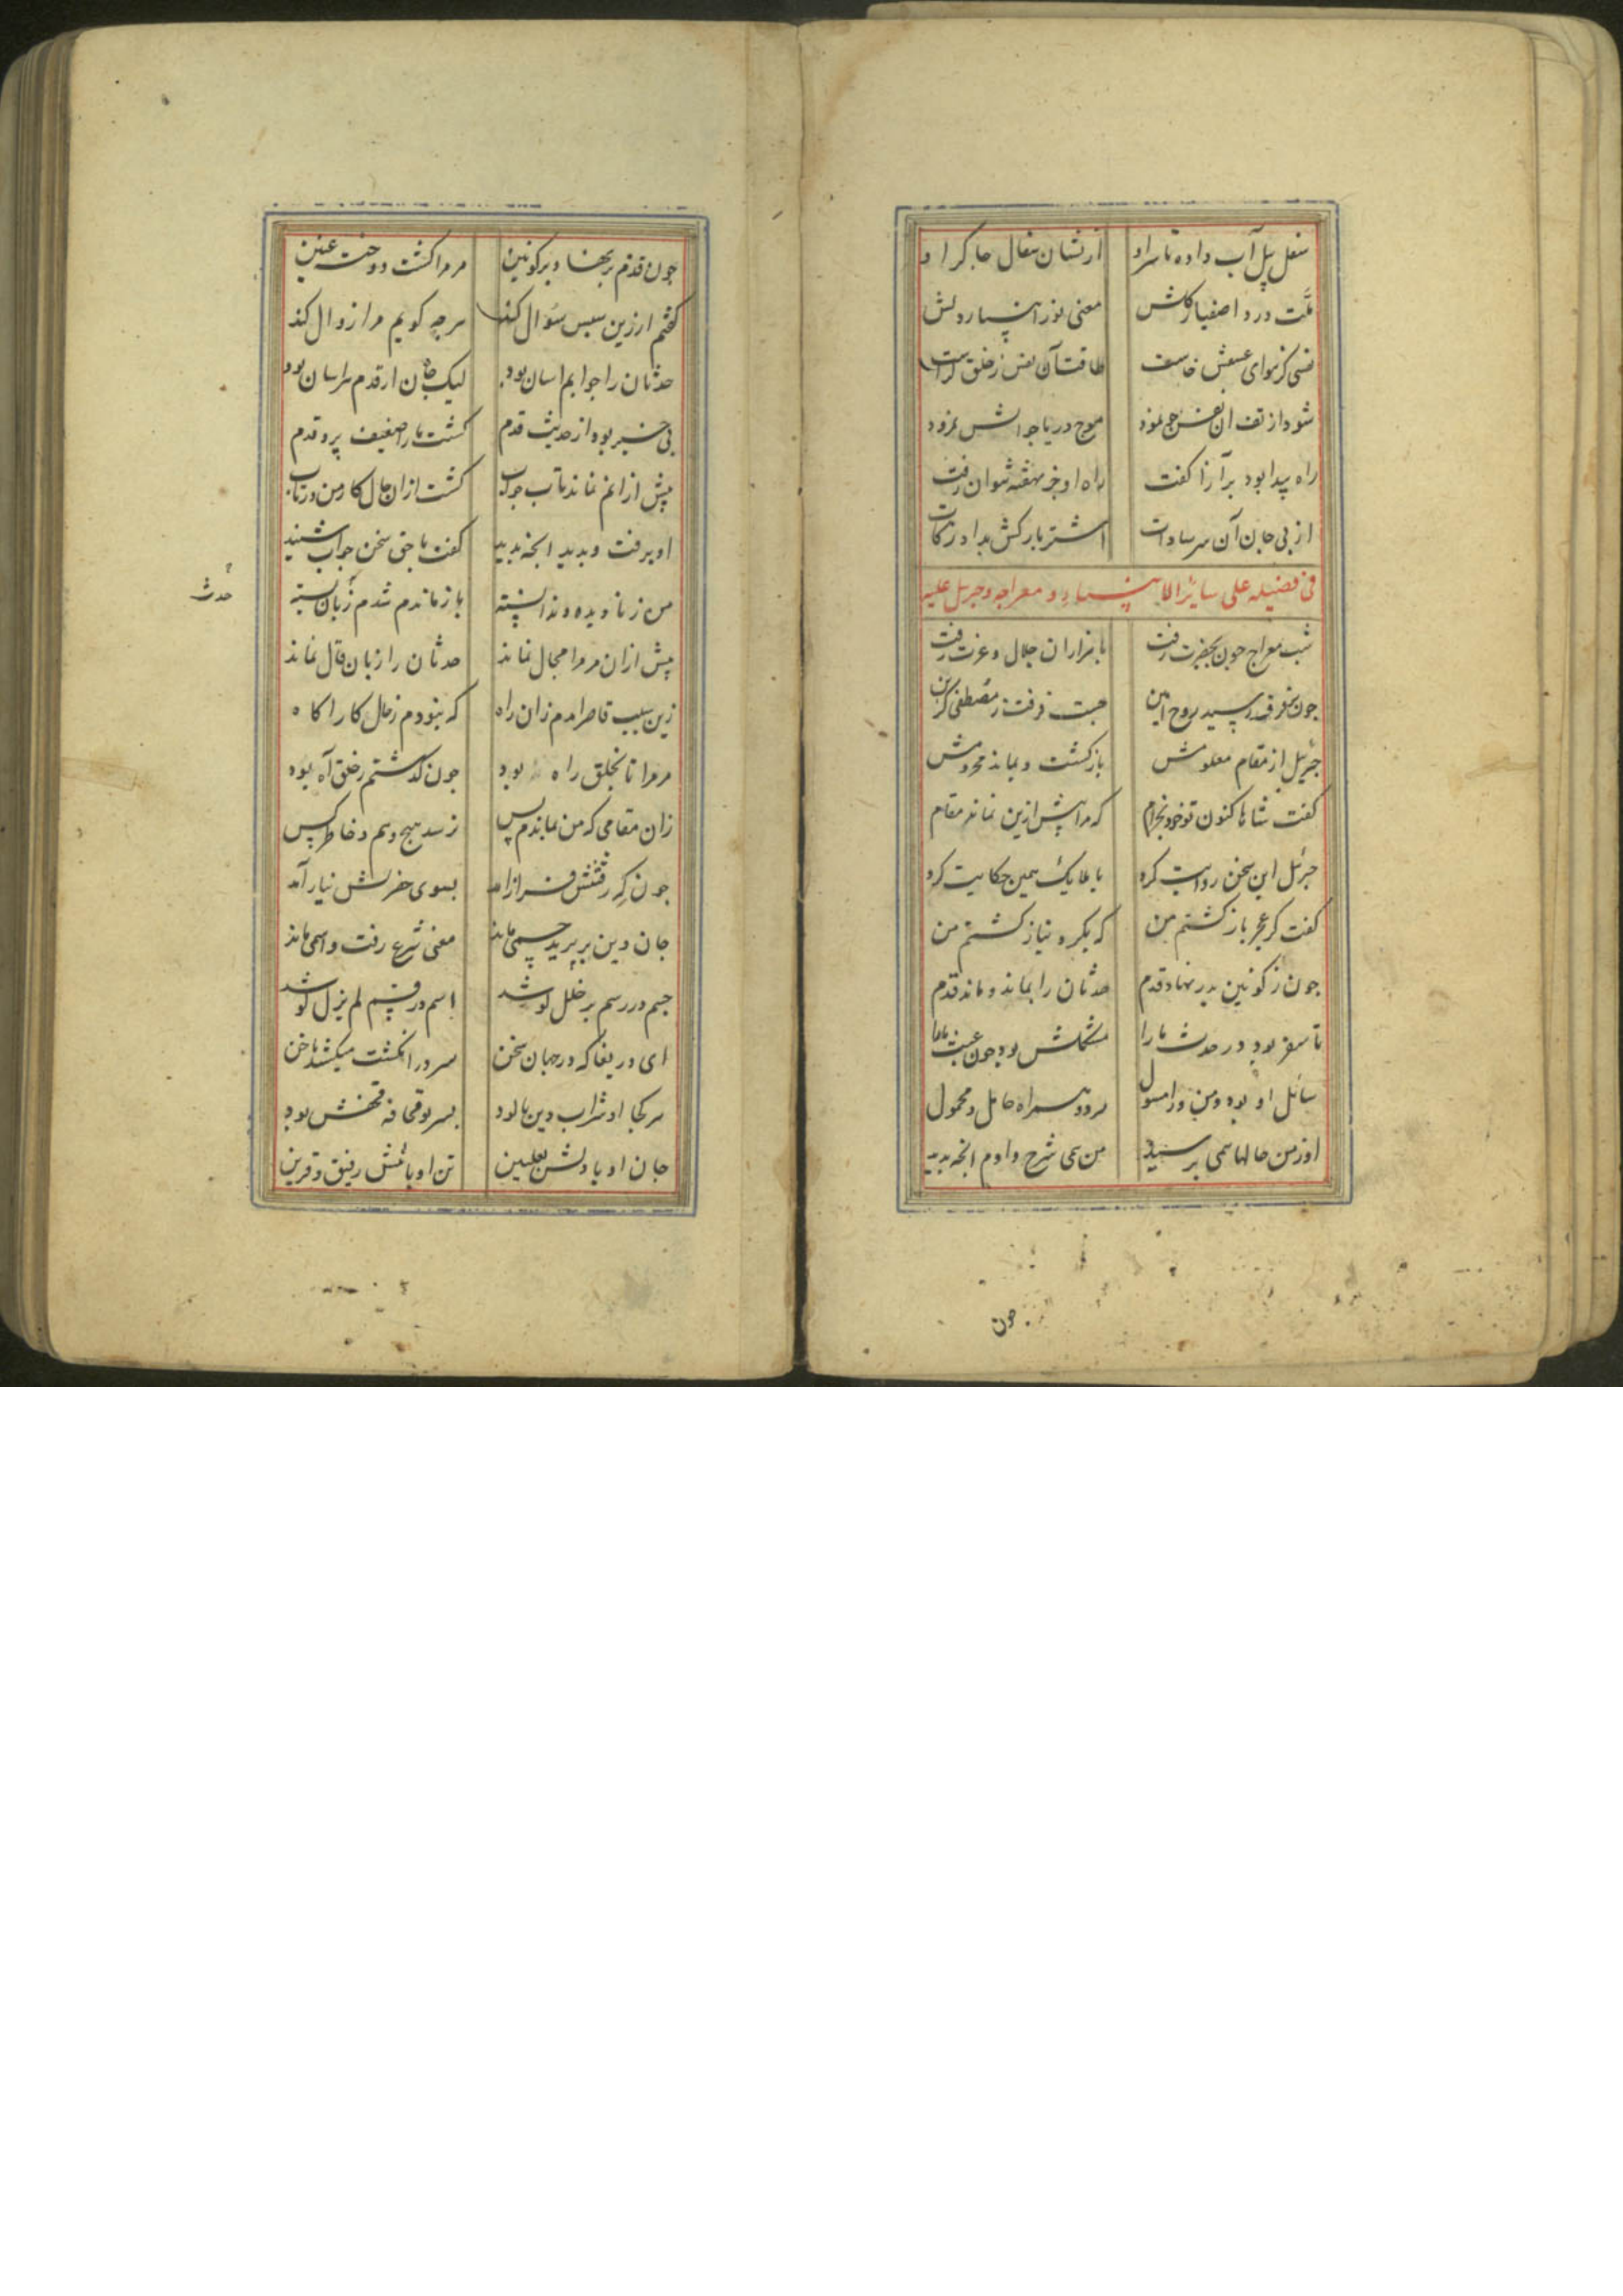 سغل پل آب داده تا سر او از نشان سفال جا کر او
ملت درد اصفیا کش معنی نور انبیا رویش
شود از تف آن نفس موج دریا
راه پیدا بود برآنرا کفت راه او جز بهفته نتوان رفت
از پی جان آن سر سادات اشتر بارکش بداد زکات
فی فضیله علی سائر الانبیاء و معراجه و جبریل علیه
شب معراج چون بحضرت رفت با هزاران جلال و عزت رفت
جون برفرف رسید روح امین جست فرقت ز مصطفی کزین
جبریل از مقام معلومش بازکشت و بماند محرومش
کفت شاها کنون تو خود بخرام که مرا پیش ازین نماند مقام
جبرئیل این سخن روایت کرد با ملایک همین حکایت کرد
کفت کز عجز بازکشتم من که بکرد نیاز کشتم من
جون ز کونین بدر نهاد قدم حدثان را بماند و ماند قدم
تا سفر بود در حدث ما را مشکلش بود جون عست ما را
سائل او بود و من ورا مسول هر دو همراه حامل و محمول
او ز من حالها همی پرسید من همی شرح دادم انجه بدید
جون
جون قدم برنهاد بر کونین مر مرا کشت دوخت عینین
کفتم ار زین سپس سؤال کند هرجه کویم مرا زوال کند
حدثان را جوابم اسان بود لیک جان از قدم هراسان بود
بی خبر بود از حدیث قدم کشت ما را ضعیف پر و قدم
پیش ازانم نماند تاب جواب کشت ازان حال کار من در تاب
او برفت و بدید انجه بدید کفت با حق سخن جواب شنید
حدث
من ز نادیده و ندانسته باز ماندم شدم زبان بسته
پیش ازان مر مرا مجال نماند حدثان را زبان قال نماند
زین سبب قاصر امدم زان راه که نبودم ز حال کار اکاه
مر مرا تا بخلق راه بود جون کذشتم ز خلق آه بود
زان مقامی که من بماندم پس نرسد هیج وهم و خاطر کس
جون که رفتنش فراز امد بسوی حضرتش نیاز آمد
جان دین بر پرید جسمی ماند معنی شرع رفت و اسمی ماند
جسم در رسم پر خلل کوشد اسم در قسم لم یزل کوشد
ای دریغا که در جهان سخن سر در انکشت میکشد ناخن
هر کجا او شراب دین پالود پسر بوقحافه قحفش بود
جان او با دلش بعلیین تن او با تنش رفیق و قرین